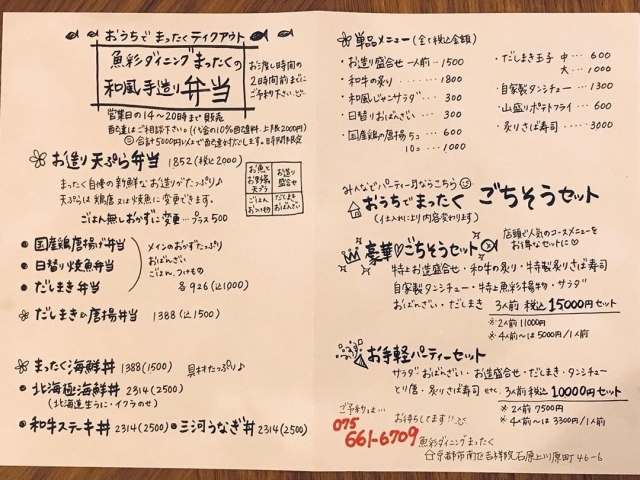 おうちで まったく テイクアウト
魚彩ダイニング まったくの
和風手造り 弁当
お渡し時間の
2時間前までに
ご予約下さい
営業日の14〜20時まで販売
配達はご相談下さい。(代金の10%配達料、上限2000円)
合計5000円以上で配達致します。時間限定
お造り 天ぷら弁当 1852(税込2000)
まったく自慢の新鮮なお造りがたっぷり♪
天ぷらは鶏唐又は焼魚に変更できます。
ごはん無しおかずに変更…プラス500
お魚と
お野菜の
天ぷら
お造り
盛合せ
ごはん
お漬もの
だしまき
おばんざい
国産鶏唐揚げ弁当
日替り焼魚弁当
だしまき弁当
メインのおかずたっぷり
おばんざい
ごはん、つけもの
各926(込1000)
だしまき&唐揚弁当 1388(込1500)
まったく海鮮丼 1388(1500) 具材たっぷり♪
北海極海鮮丼 2314(2500)
(北海道生うに・イクラのせ)
和牛ステーキ丼 2314(2500)
三河うなぎ丼 2314(2500)
単品メニュー(全て税込金額)
・お造り盛合せ一人前…1500
・和牛の炙り……1800
・和風じゃこサラダ…300
・日替りおばんざい…300
・国産鶏の唐揚 5コ…600
10コ…1000
・だしまき玉子 中…600
大…1000
・自家製タンシチュー…1300
・山盛りポテトフライ…600
・炙りさば寿司…3000
みんなでパーティー♪ならこちら
おうちでまったく ごちそうセット
(仕入れにより内容変わります)
店頭で人気のコースメニューを
お得なセットに♡
豪華♡ごちそうセット
特上お造盛合せ・和牛の炙り・特製炙りさば寿司
自家製タンシチュー・特上魚彩揚物・サラダ
おばんざい・だしまき 3人前 税込15000円セット
※2人前 11000円
※4人前〜は 5000円/1人前
お手軽パーティーセット
サラダ・おばんざい・お造盛合せ・だしまき・タンシチュー
とり唐・炙りさば寿司 etc. 3人前 税込10000円セット
※2人前 7500円
※4人前〜は 3300円/1人前
ご予約は…
お待ちしてます!!
075
661-6709
魚彩ダイニングまったく
京都市南区吉祥院石原上川原町46-6